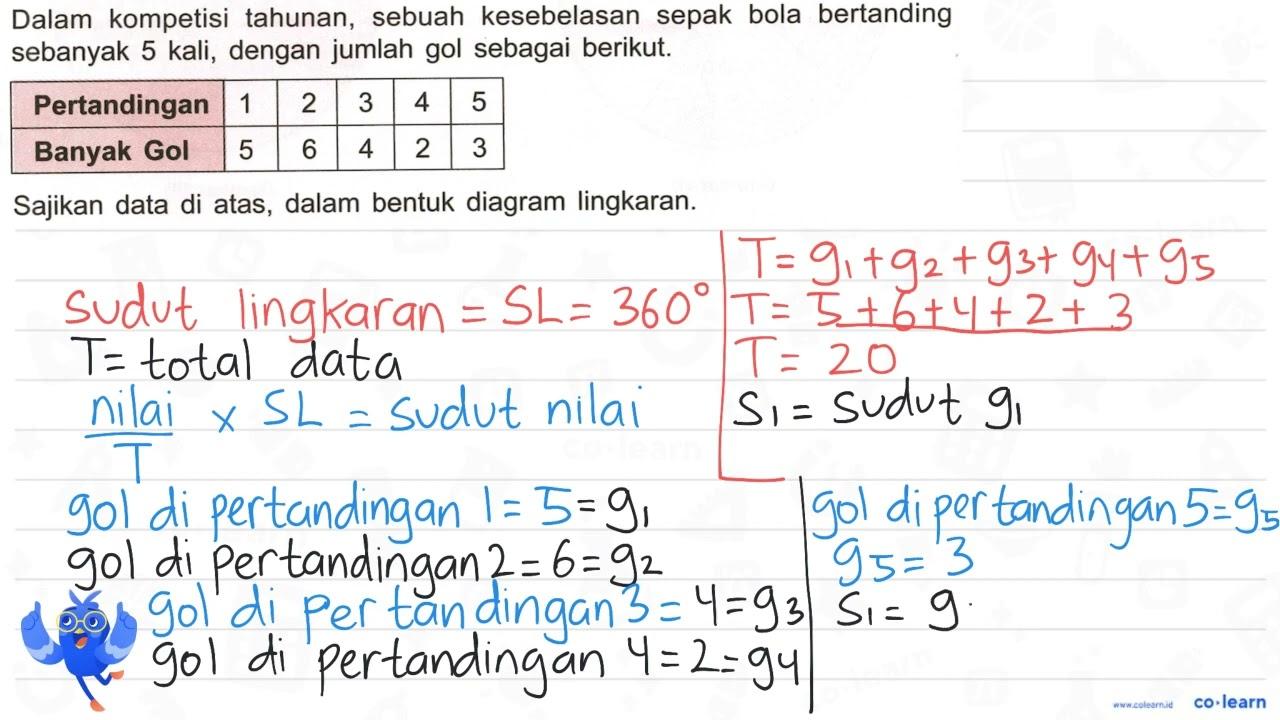 Dalam kompetisi tahunan, sebuah kesebelasan sepak bola bertanding
sebanyak 5 kali, dengan jumlah gol sebagai berikut.
Pertandingan 1 2 3 4 5
Banyak Gol 5 6 4 2 3
Sajikan data di atas, dalam bentuk diagram lingkaran.
sudut lingkaran = SL = 360°
T = total data
nilai / T × SL = sudut nilai
T = g1 + g2 + g3 + g4 + g5
T = 5 + 6 + 4 + 2 + 3
T = 20
S1 = sudut g1
gol di pertandingan 1 = 5 = g1
gol di pertandingan 2 = 6 = g2
gol di pertandingan 3 = 4 = g3
gol di pertandingan 4 = 2 = g4
gol di pertandingan 5 = g5
g5 = 3
S1 = g
www.colearn.id co·learn
co·learn